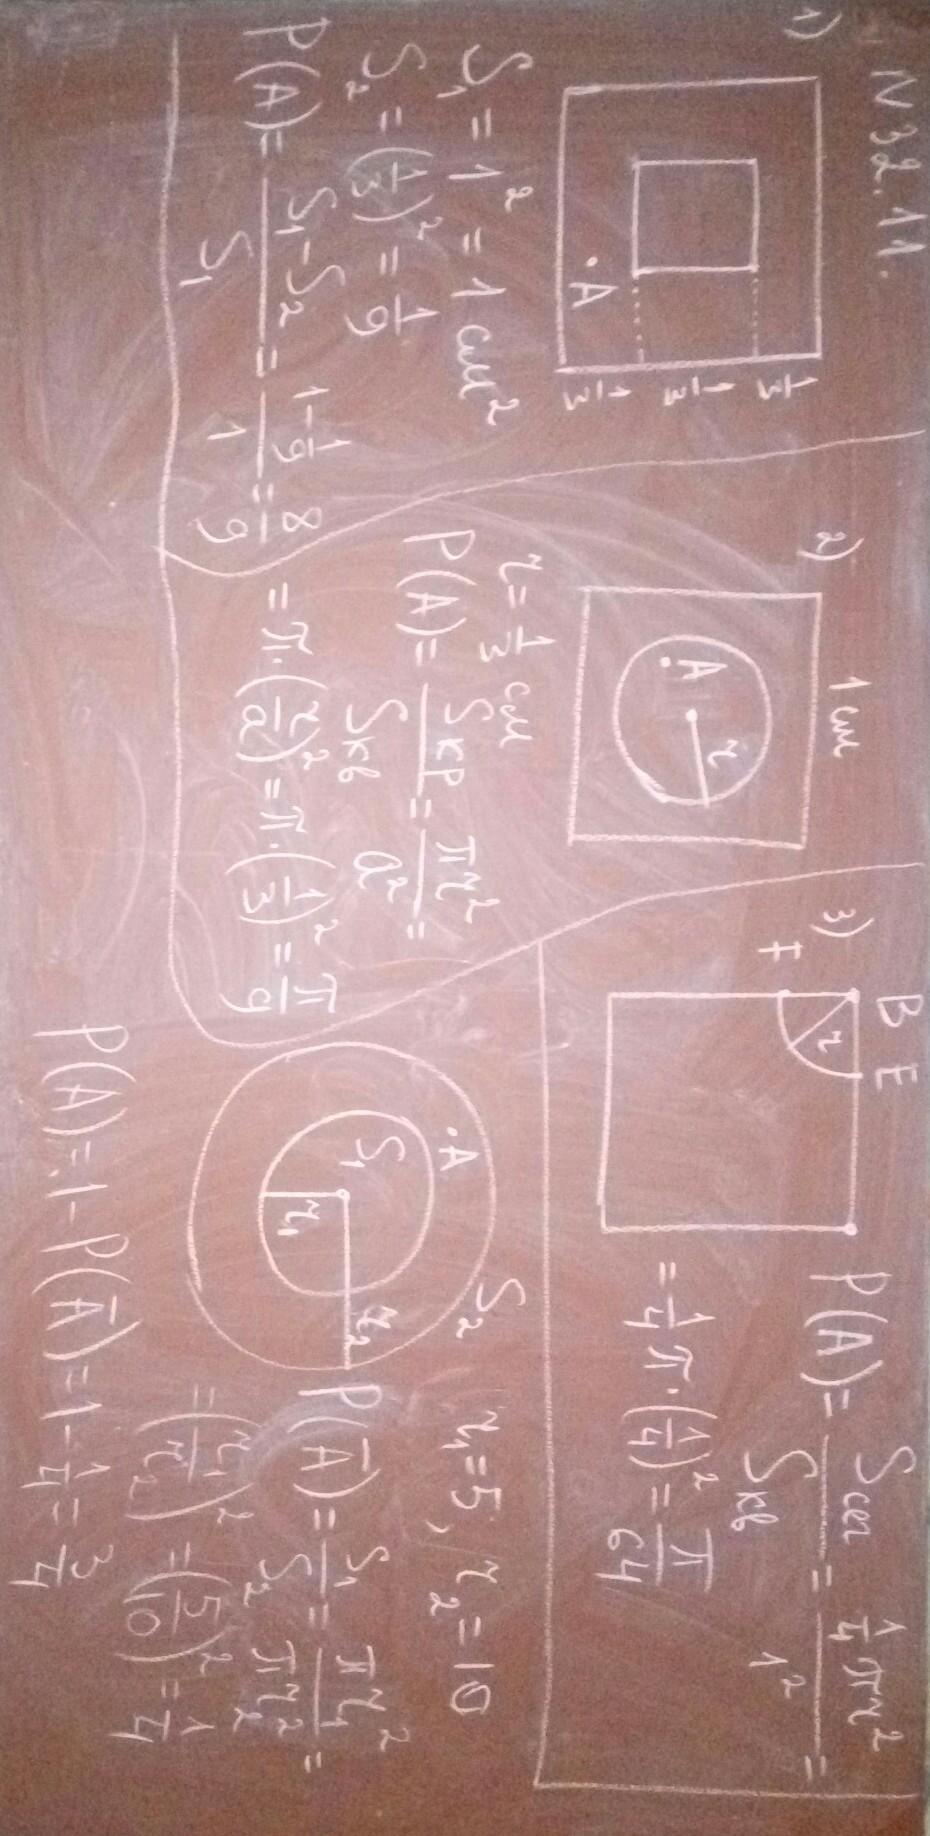 N 32.11.
1)
1/3
1/3
1/3
·A
S₁ = 1² = 1 см²
S₂ = (1/3)² = 1/9
P(A) = (S₁ - S₂)/S₁ = (1 - 1/9)/1 = 8/9
2)
1 см
A
r
r = 1/3 см
P(A) = Sкр/Sкв = πr²/a² =
= π·(r/a)² = π·(1/3)² = π/9
3)
B E
F
r
P(A) = Sсег/Sкв = (1/4 πr²)/1² =
= 1/4 π·(1/4)² = π/64
·A
S₁
S₂
r₁
r₂
r₁ = 5, r₂ = 10
P(Ā) = S₁/S₂ = πr₁²/πr₂² =
= (r₁/r₂)² = (5/10)² = 1/4
P(A) = 1 - P(Ā) = 1 - 1/4 = 3/4